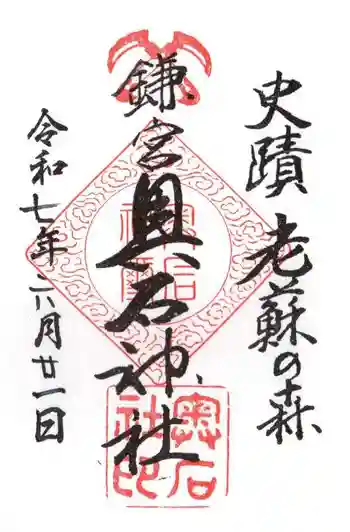 史蹟 老蘇の森
鎌宮奥石神社
令和七年六月廿一日
奥石神社
奥石社印